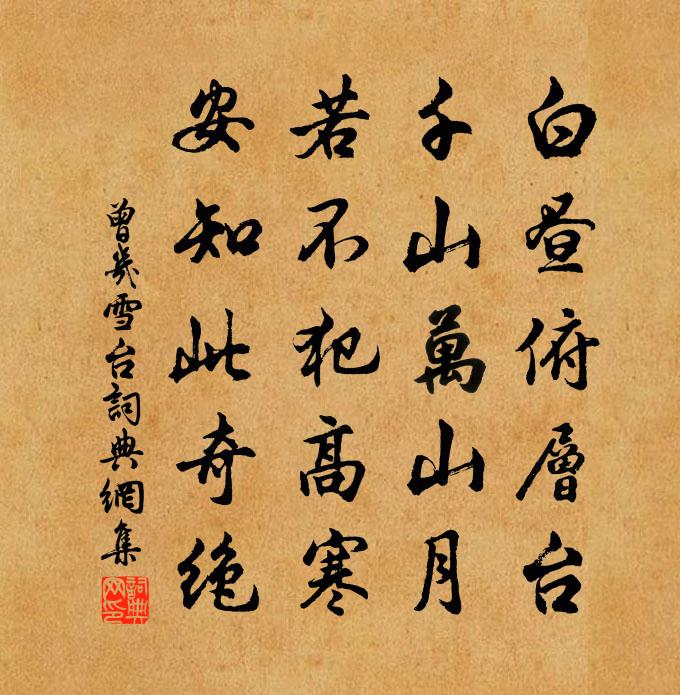 白昼俯層台
千山萬山月
若不犯高寒
安知此奇绝
曾幾雪台詞典網集
詞典网印